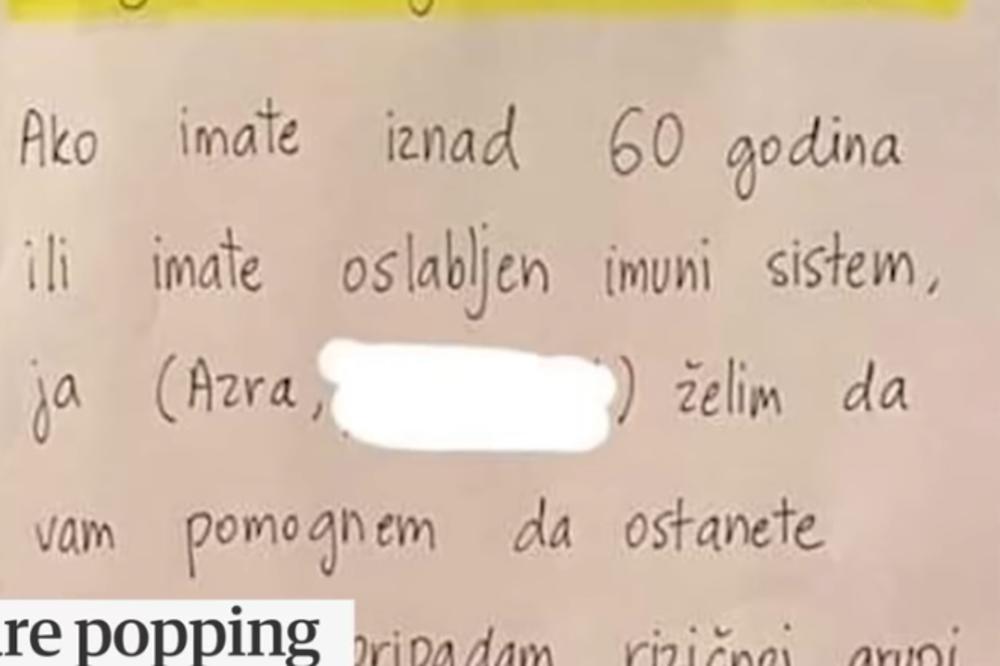 Ako imate iznad 60 godina
ili imate oslabljen imuni sistem,
ja (Azra, ) želim da
vam pomognem da ostanete
pripadam rizičnoj grupi
re popping